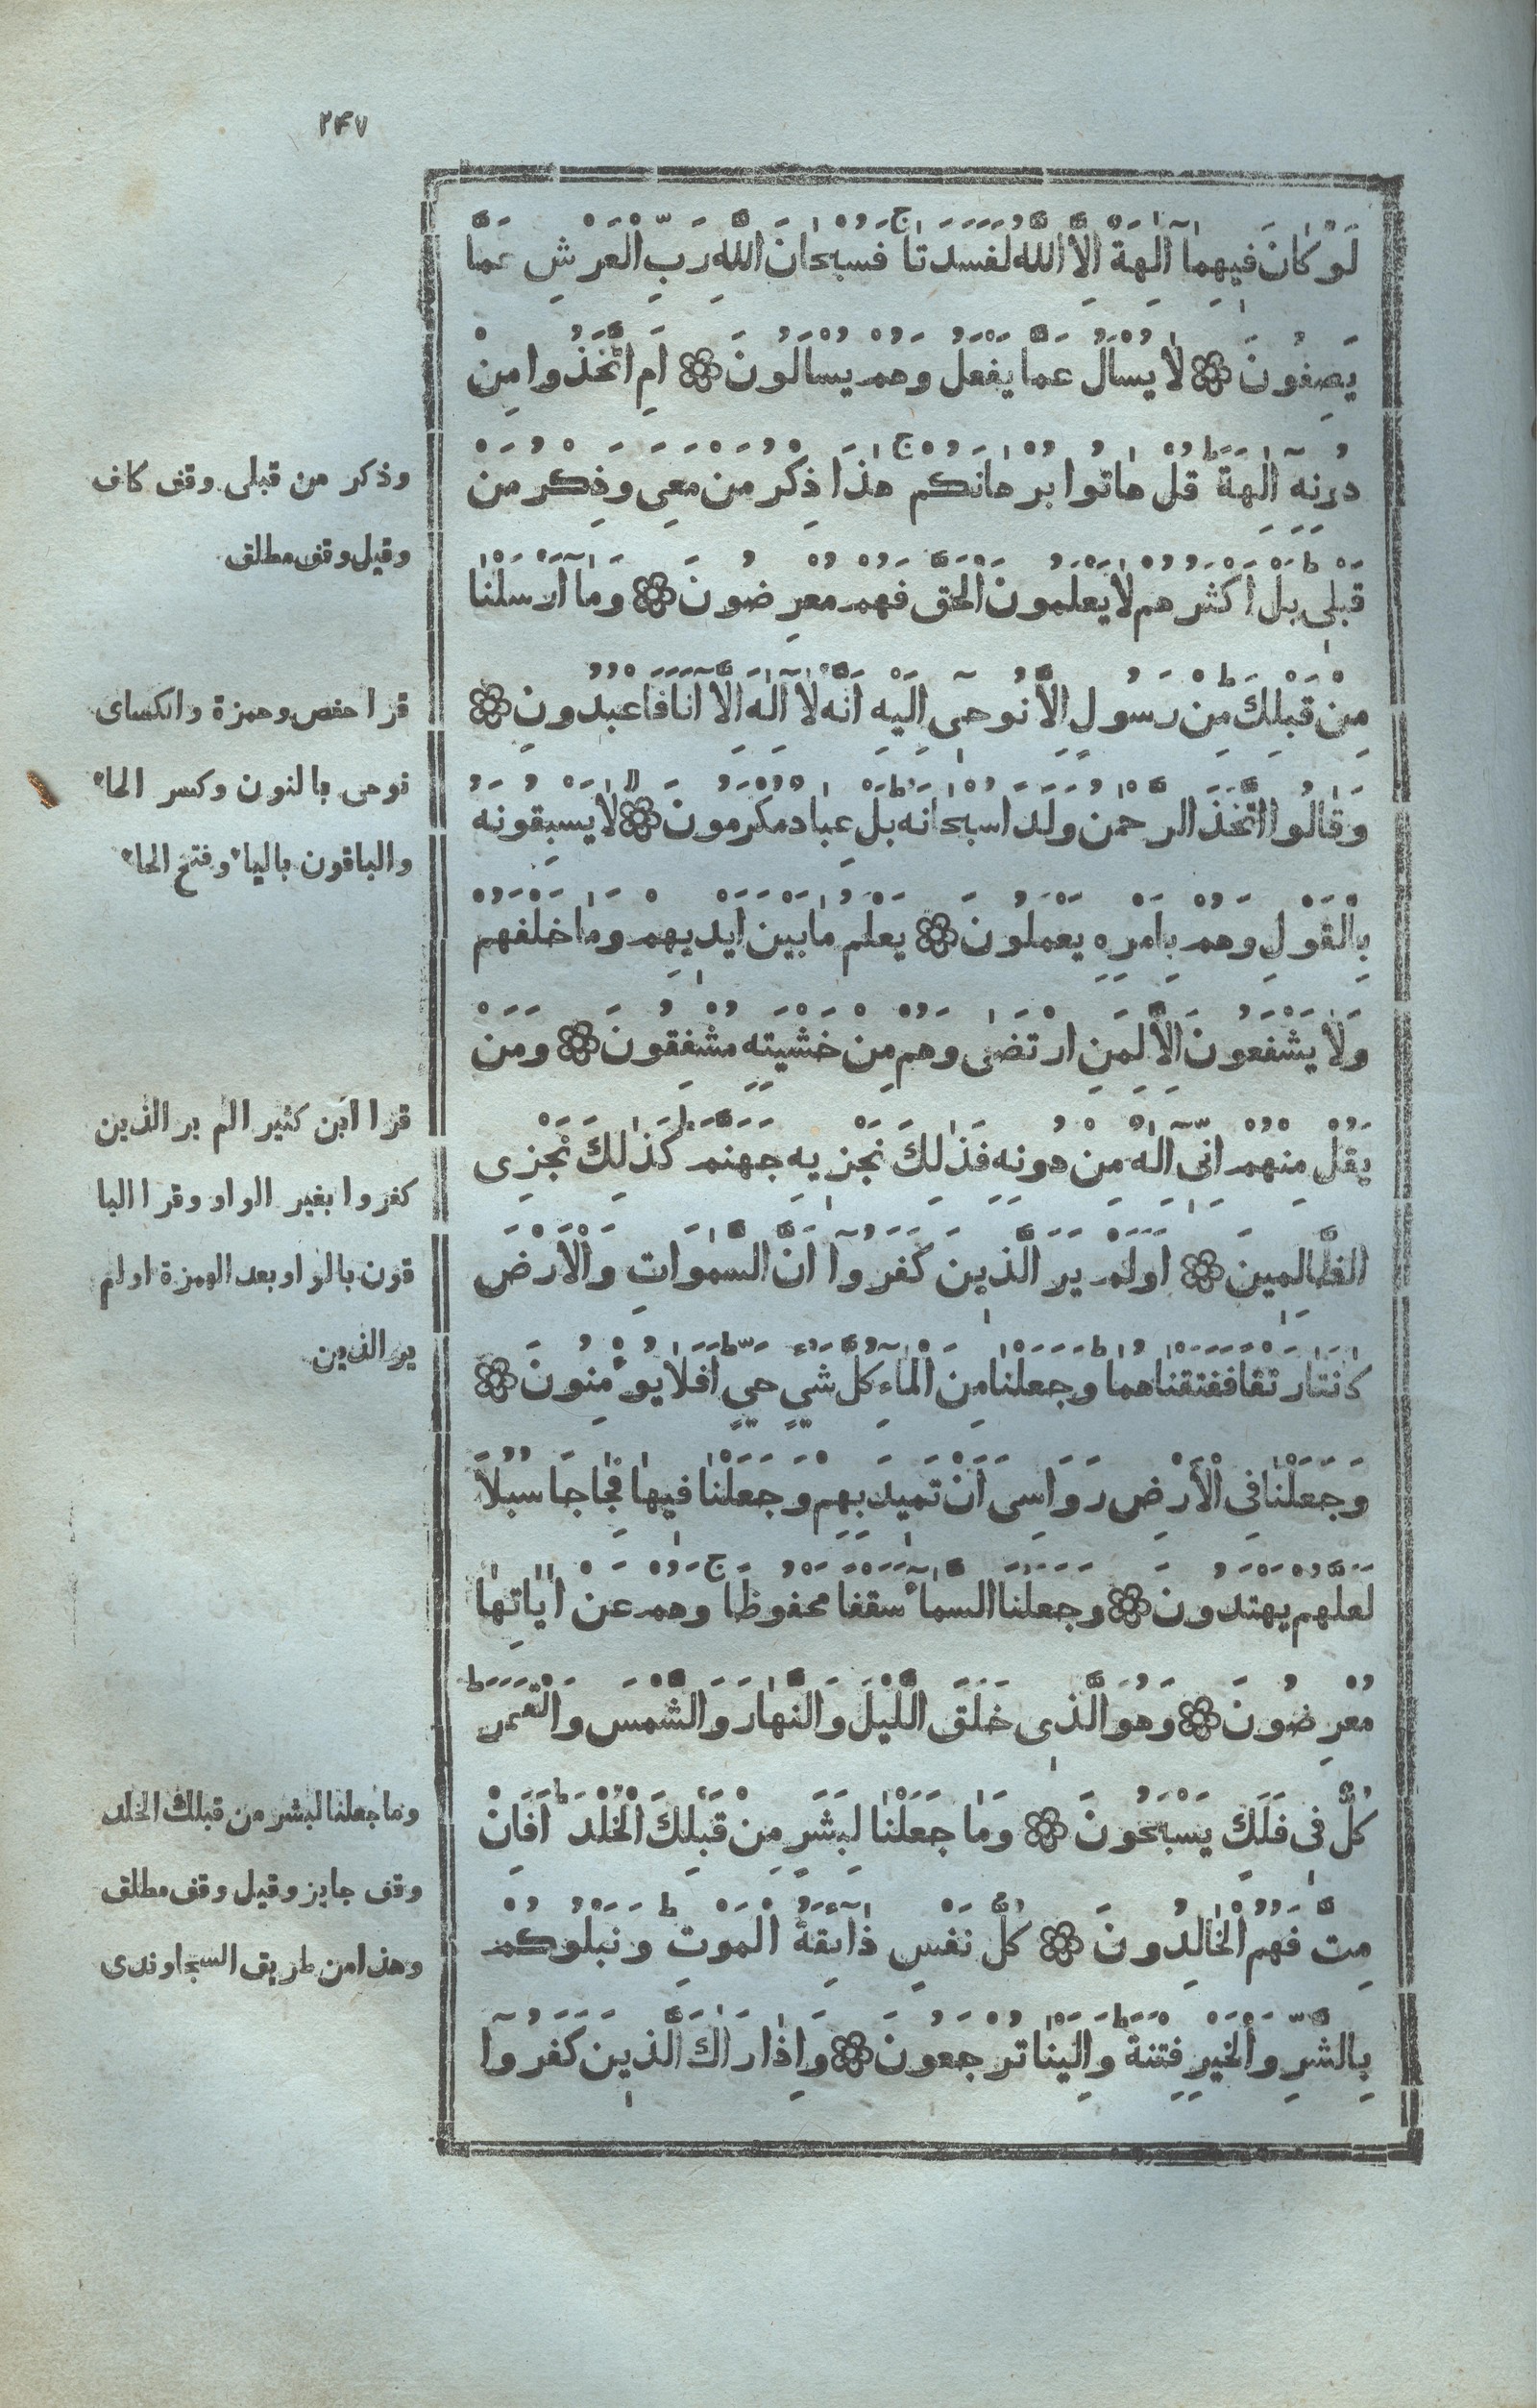 ٢٤٧
لَوْ كَانَ فِيهِمَا آلِهَةٌ إِلَّا اللَّهُ لَفَسَدَتَا ج فَسُبْحَانَ اللَّهِ رَبِّ الْعَرْشِ عَمَّا
يَصِفُونَ ۞ لَا يُسْأَلُ عَمَّا يَفْعَلُ وَهُمْ يُسْأَلُونَ ۞ اَمِ اتَّخَذُوا مِنْ
دُونِهِ آلِهَةً ط قُلْ هَاتُوا بُرْهَانَكُمْ ج هٰذَا ذِكْرُ مَنْ مَعِيَ وَذِكْرُ مَنْ
قَبْلِى ط بَلْ اَكْثَرُهُمْ لَا يَعْلَمُونَ الْحَقَّ فَهُمْ مُعْرِضُونَ ۞ وَمَا اَرْسَلْنَا
مِنْ قَبْلِكَ مِنْ رَسُولٍ اِلَّا نُوحِى اِلَيْهِ اَنَّهُ لَا اِلٰهَ اِلَّا اَنَا فَاعْبُدُونِ ۞
وَقَالُوا اتَّخَذَ الرَّحْمٰنُ وَلَدًا سُبْحَانَهُ ط بَلْ عِبَادٌ مُكْرَمُونَ ۞ لَا يَسْبِقُونَهُ
بِالْقَوْلِ وَهُمْ بِاَمْرِهِ يَعْمَلُونَ ۞ يَعْلَمُ مَا بَيْنَ اَيْدِيهِمْ وَمَا خَلْفَهُمْ
وَلَا يَشْفَعُونَ اِلَّا لِمَنِ ارْتَضٰى وَهُمْ مِنْ خَشْيَتِهِ مُشْفِقُونَ ۞ وَمَنْ
يَقُلْ مِنْهُمْ اِنِّى اِلٰهٌ مِنْ دُونِهِ فَذٰلِكَ نَجْزِيهِ جَهَنَّمَ ط كَذٰلِكَ نَجْزِى
الظَّالِمِينَ ۞ اَوَلَمْ يَرَ الَّذِينَ كَفَرُوآ اَنَّ السَّمٰوَاتِ وَالْاَرْضَ
كَانَتَا رَتْقًا فَفَتَقْنَاهُمَا ط وَجَعَلْنَا مِنَ الْمَآءِ كُلَّ شَيْءٍ حَيٍّ ط اَفَلَا يُؤْمِنُونَ ۞
وَجَعَلْنَا فِى الْاَرْضِ رَوَاسِىَ اَنْ تَمِيدَ بِهِمْ وَجَعَلْنَا فِيهَا فِجَاجًا سُبُلًا
لَعَلَّهُمْ يَهْتَدُونَ ۞ وَجَعَلْنَا السَّمَآءَ سَقْفًا مَحْفُوظًا ج وَهُمْ عَنْ اٰيَاتِهَا
مُعْرِضُونَ ۞ وَهُوَ الَّذِى خَلَقَ اللَّيْلَ وَالنَّهَارَ وَالشَّمْسَ وَالْقَمَرَ ط
كُلٌّ فِى فَلَكٍ يَسْبَحُونَ ۞ وَمَا جَعَلْنَا لِبَشَرٍ مِنْ قَبْلِكَ الْخُلْدَ ط اَفَاِنْ
مِتَّ فَهُمُ الْخَالِدُونَ ۞ كُلُّ نَفْسٍ ذَآئِقَةُ الْمَوْتِ ط وَنَبْلُوكُمْ
بِالشَّرِّ وَالْخَيْرِ فِتْنَةً ط وَاِلَيْنَا تُرْجَعُونَ ۞ وَاِذَا رَاٰكَ الَّذِينَ كَفَرُوآ
وذكر من قبلى وقف كاف
وقيل وقف مطلق
قرا حفص وحمزة والكساى
نوحى بالنون وكسر الحاء
والباقون بالياء وفتح الحاء
قرا ابن كثير الم ير الذين
كفروا بغير الواو وقرا البا
قون بالواو بعد الهمزة اولم
ير الذين
وما جعلنا لبشر من قبلك الخلد
وقف جايز وقيل وقف مطلق
وهذا من طريق السجاوندى